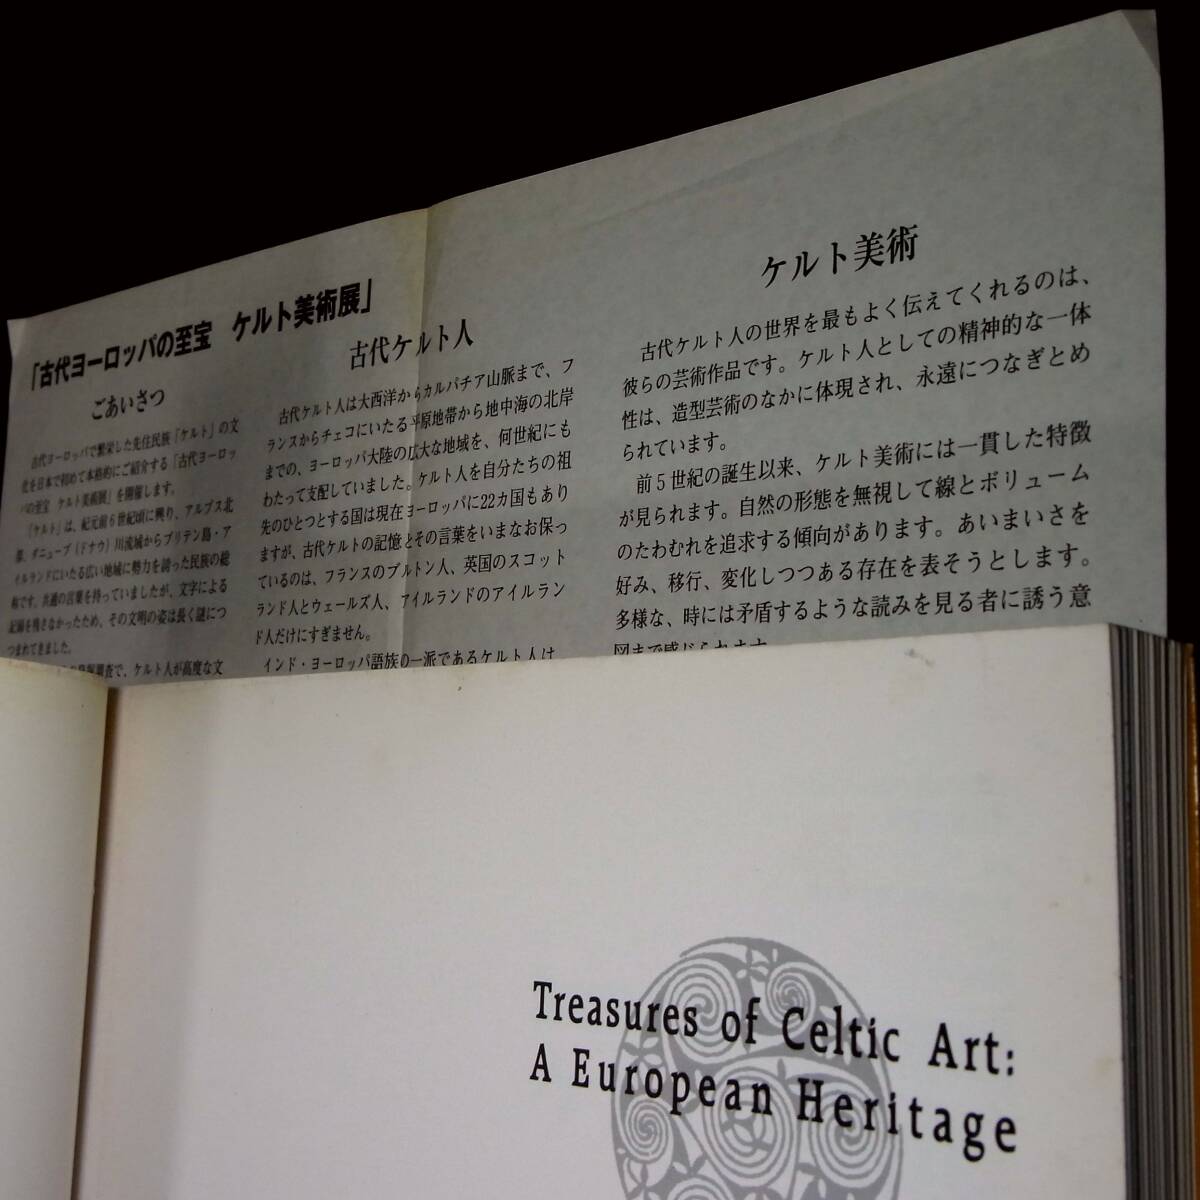 「古代ヨーロッパの至宝　ケルト美術展」
ごあいさつ
古代ヨーロッパで繁栄した先住民族「ケルト」の文
化を日本で初めて本格的にご紹介する「古代ヨーロッ
パの至宝　ケルト美術展」を開催します。
「ケルト」は、紀元前6世紀頃に興り、アルプス北
部、ダニューブ（ドナウ）川流域からブリテン島・ア
イルランドにいたる広い地域に勢力を誇った民族の総
称です。共通の言葉を持っていましたが、文字による
記録を残さなかったため、その文明の姿は長く謎につ
つまれてきました。
発掘調査で、ケルト人が高度な文
古代ケルト人
古代ケルト人は大西洋からカルパチア山脈まで、フ
ランスからチェコにいたる平原地帯から地中海の北岸
までの、ヨーロッパ大陸の広大な地域を、何世紀にも
わたって支配していました。ケルト人を自分たちの祖
先のひとつとする国は現在ヨーロッパに22カ国もあり
ますが、古代ケルトの記憶とその言葉をいまなお保っ
ているのは、フランスのブルトン人、英国のスコット
ランド人とウェールズ人、アイルランドのアイルラン
ド人だけにすぎません。
インド・ヨーロッパ語族の一派であるケルト人は
ケルト美術
古代ケルト人の世界を最もよく伝えてくれるのは、
彼らの芸術作品です。ケルト人としての精神的な一体
性は、造型芸術のなかに体現され、永遠につなぎとめ
られています。
前5世紀の誕生以来、ケルト美術には一貫した特徴
が見られます。自然の形態を無視して線とボリューム
のたわむれを追求する傾向があります。あいまいさを
好み、移行、変化しつつある存在を表そうとします。
多様な、時には矛盾するような読みを見る者に誘う意
図まで感じられます
Treasures of Celtic Art:
A European Heritage